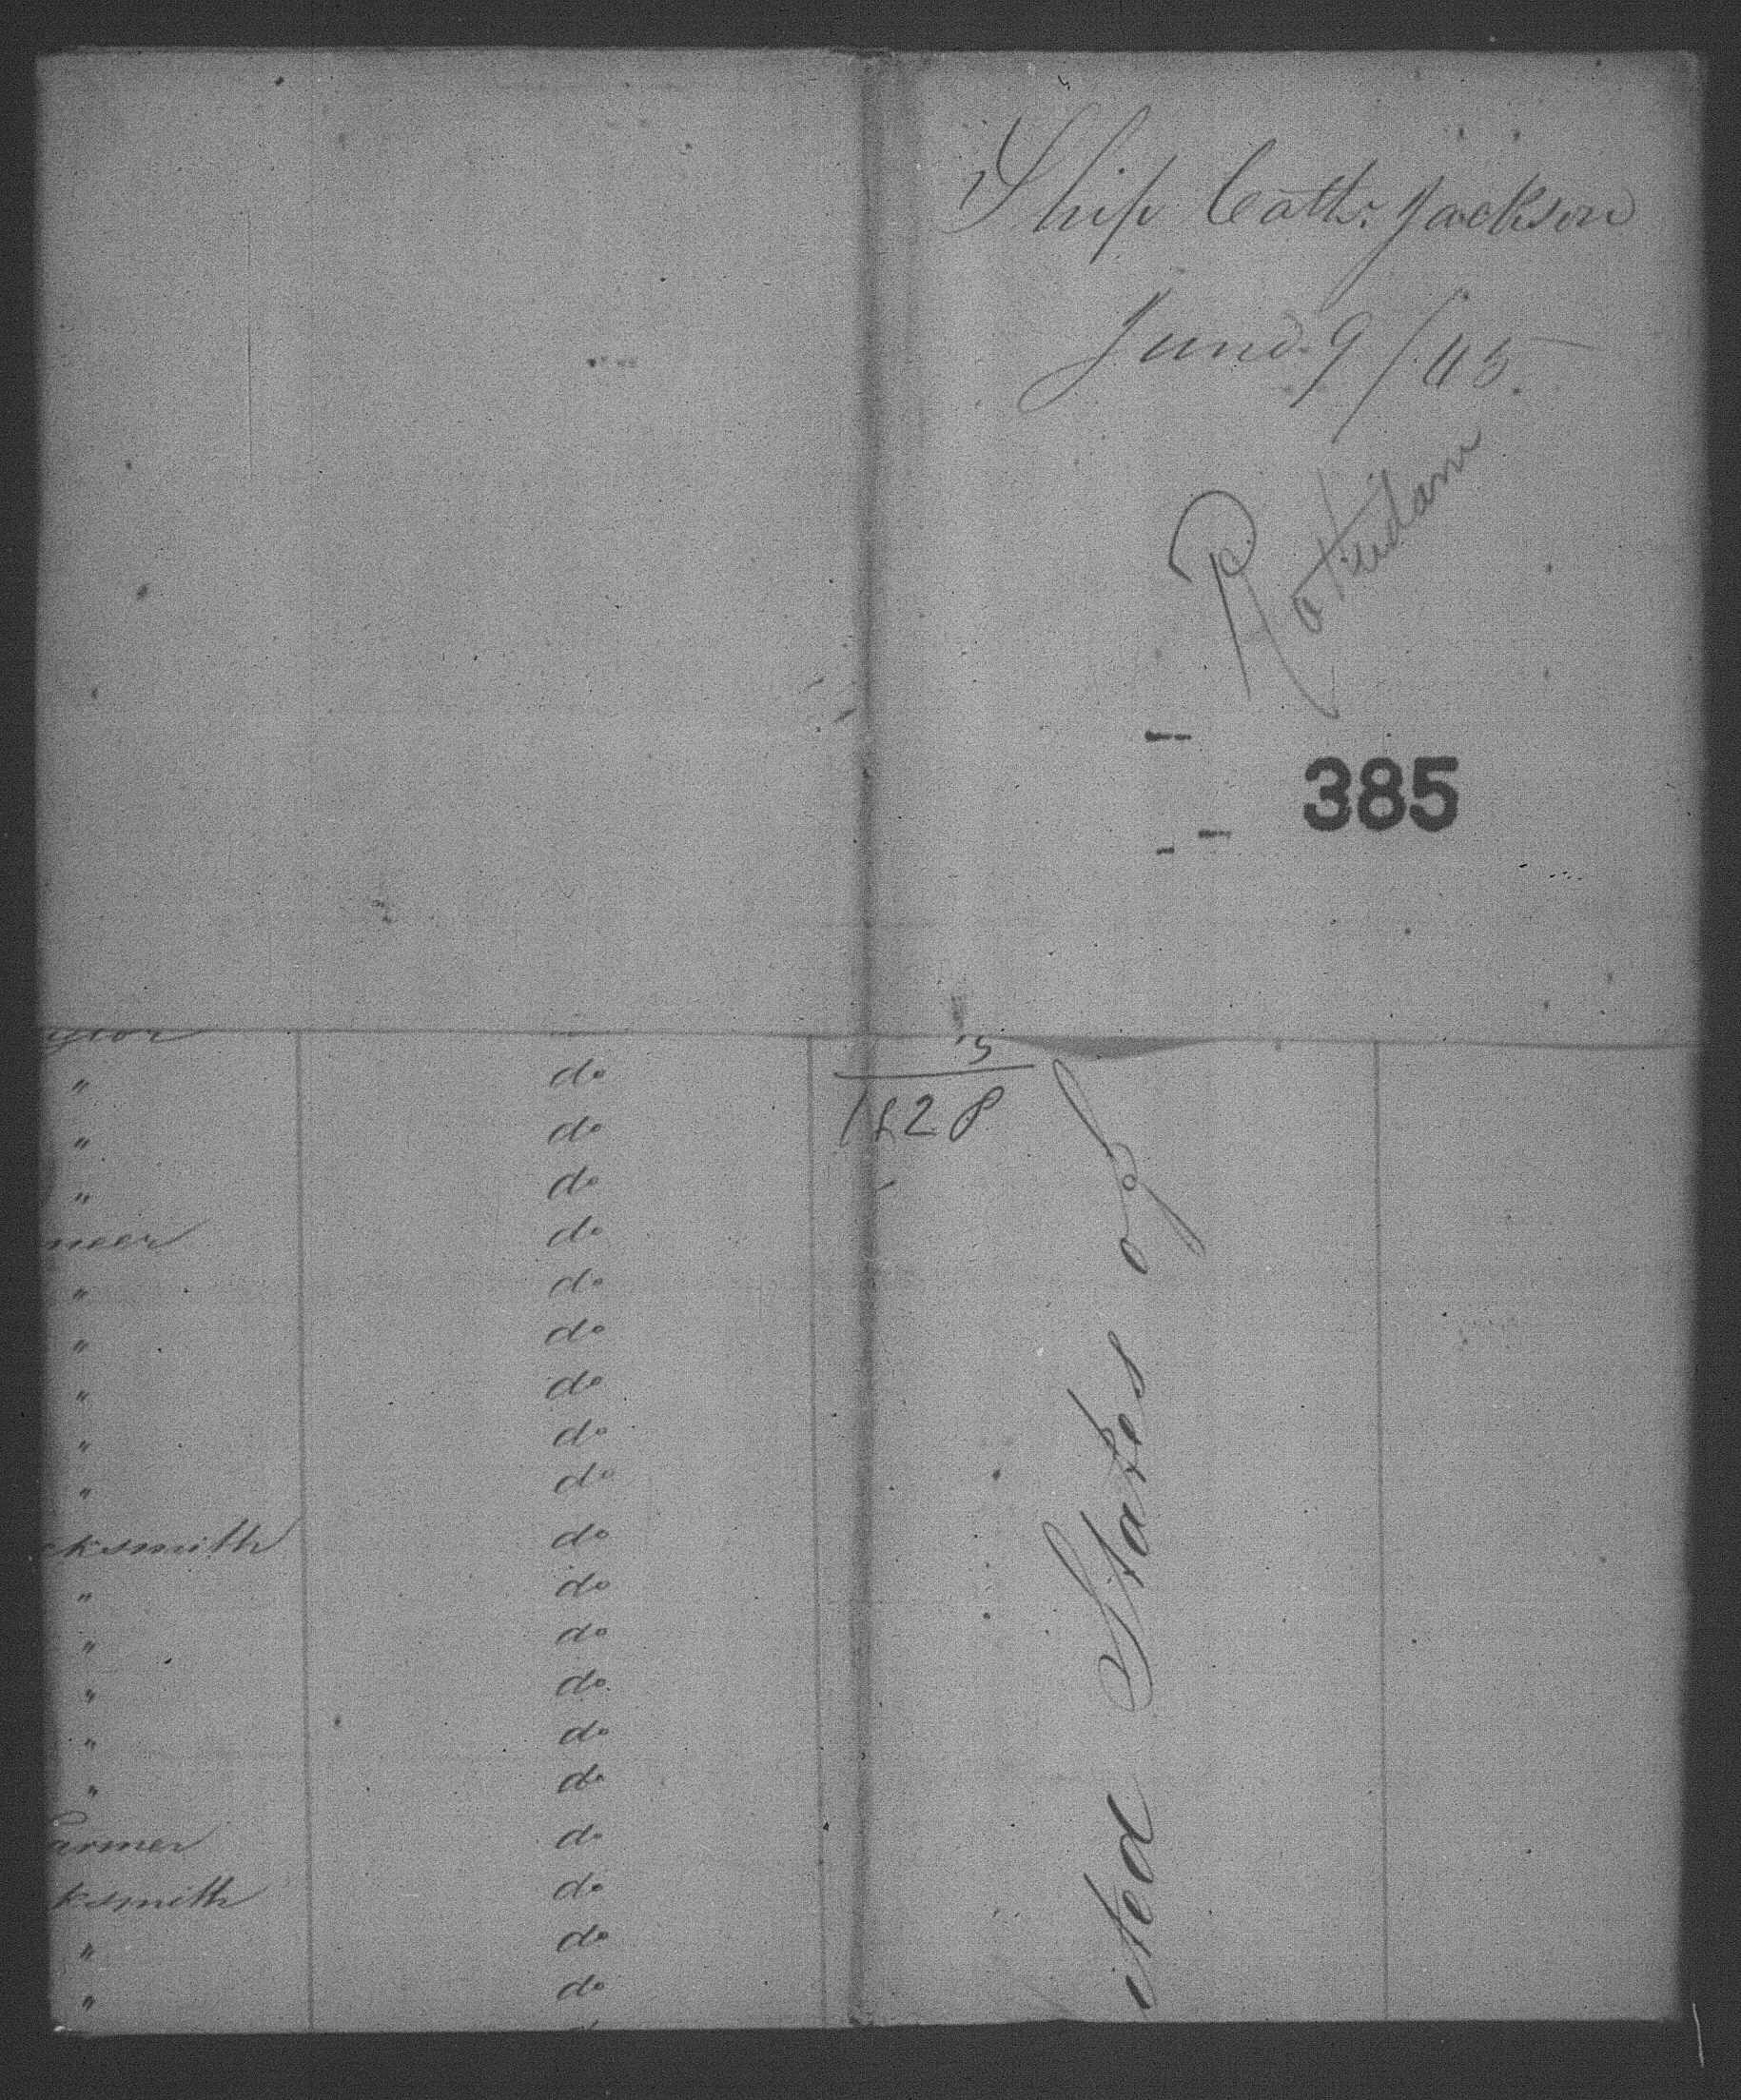 Ship Cath. Jackson
June 9/45.
Rotterdam
385
" do
" do
" do
neer do
" do
" do
" do
" do
" do
cksmith do
" do
" do
" do
" do
" do
armer do
ksmith do
" do
" do
5
ited States of